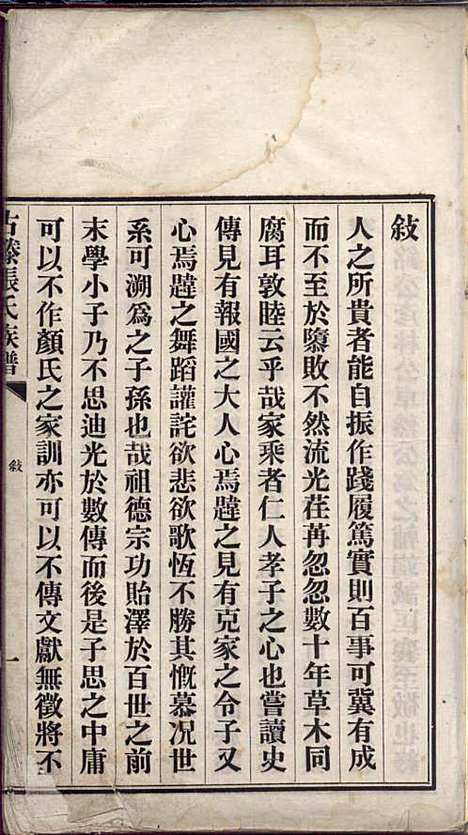 敍
人之所貴者能自振作踐履篤實則百事可冀有成
而不至於隳敗不然流光荏苒忽忽數十年草木同
腐耳敦睦云乎哉家乘者仁人孝子之心也嘗讀史
傳見有報國之大人心焉韙之見有克家之令子又
心焉韙之舞蹈讙詫欲悲欲歌恆不勝其慨慕况世
系可溯爲之子孫也哉祖德宗功貽澤於百世之前
末學小子乃不思迪光於數傳而後是子思之中庸
可以不作顏氏之家訓亦可以不傳文獻無徵將不
古滕張氏族譜
敍
一